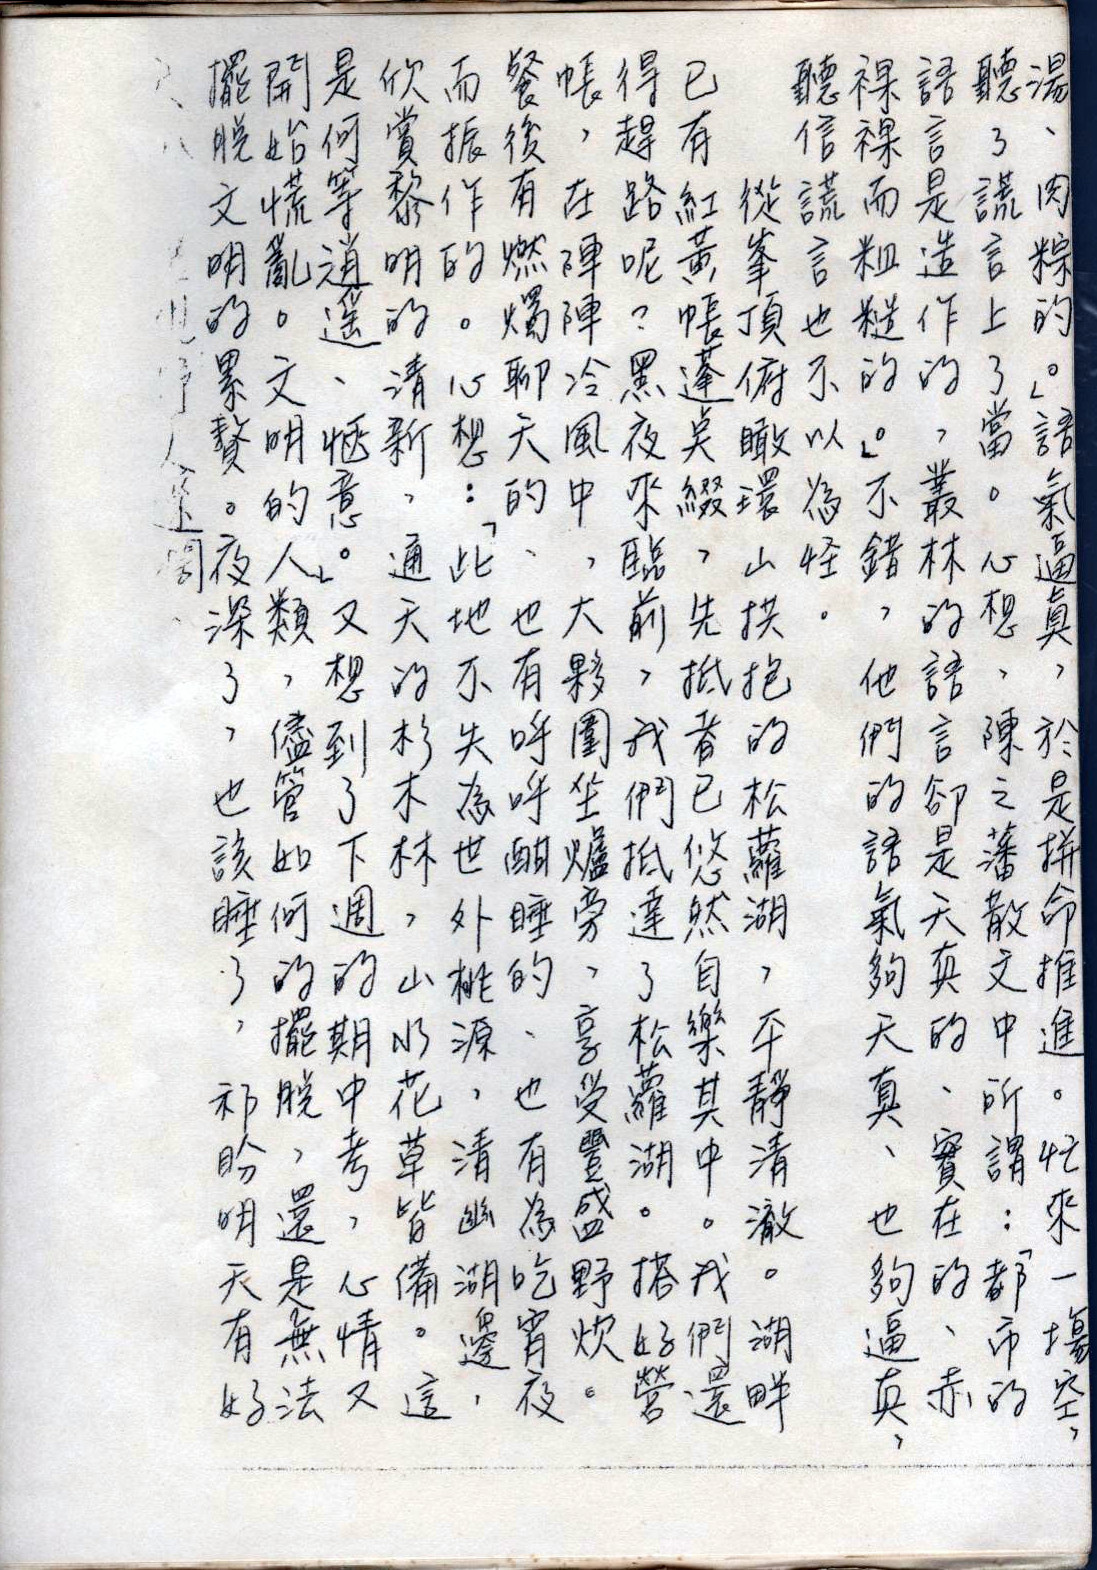 湯、肉粽的。」語氣逼真，於是拼命推進。忙來一場空，
聽了謊言上了當。心想，陳之藩散文中所謂：「都市的
語言是造作的，叢林的語言卻是天真的、實在的、赤
裸裸而粗糙的。」不錯，他們的語氣夠天真、也夠逼真，
聽信謊言也不以為怪。
從峯頂俯瞰環山拱抱的松蘿湖，平靜清澈。湖畔
已有紅黃帳蓬點綴，先抵者已悠然自樂其中。我們還
得趕路呢？黑夜來臨前，我們抵達了松蘿湖。搭好營
帳，在陣陣冷風中，大夥圍坐爐旁，享受豐盛野炊。
餐後有燃燭聊天的、也有呼呼酣睡的、也有為吃宵夜
而振作的。心想：「此地不失為世外桃源，清幽湖邊，
欣賞黎明的清新，通天的杉木林，山水花草皆備。這
是何等逍遥、愜意。」又想到了下週的期中考，心情又
開始慌亂。文明的人類，儘管如何的擺脫，還是無法
擺脫文明的累贅。夜深了，也該睡了，祁盼明天有好